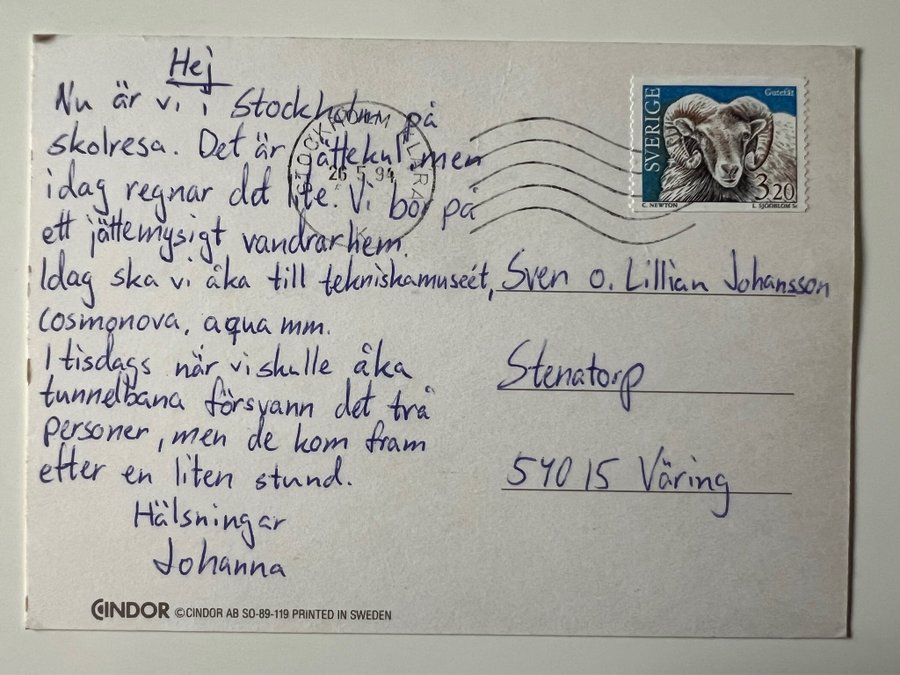 Hej
Nu är vi i Stockholm på
skolresa. Det är jättekul, men
idag regnar det lite. Vi bor på
ett jättemysigt vandrarhem.
Idag ska vi åka till tekniskamuseét,
Cosmonova, aqua mm.
I tisdags när vi skulle åka
tunnelbana försvann det två
personer, men de kom fram
efter en liten stund.
Hälsningar
Johanna
CINDOR © CINDOR AB SO-89-119 PRINTED IN SWEDEN
STOCKHOLM KLARA
26 5 94
SVERIGE
Gutefår
3.20
C. NEWTON L. SJÖÖBLOM Sc
Sven o. Lillian Johansson
Stenatorp
540 15 Väring